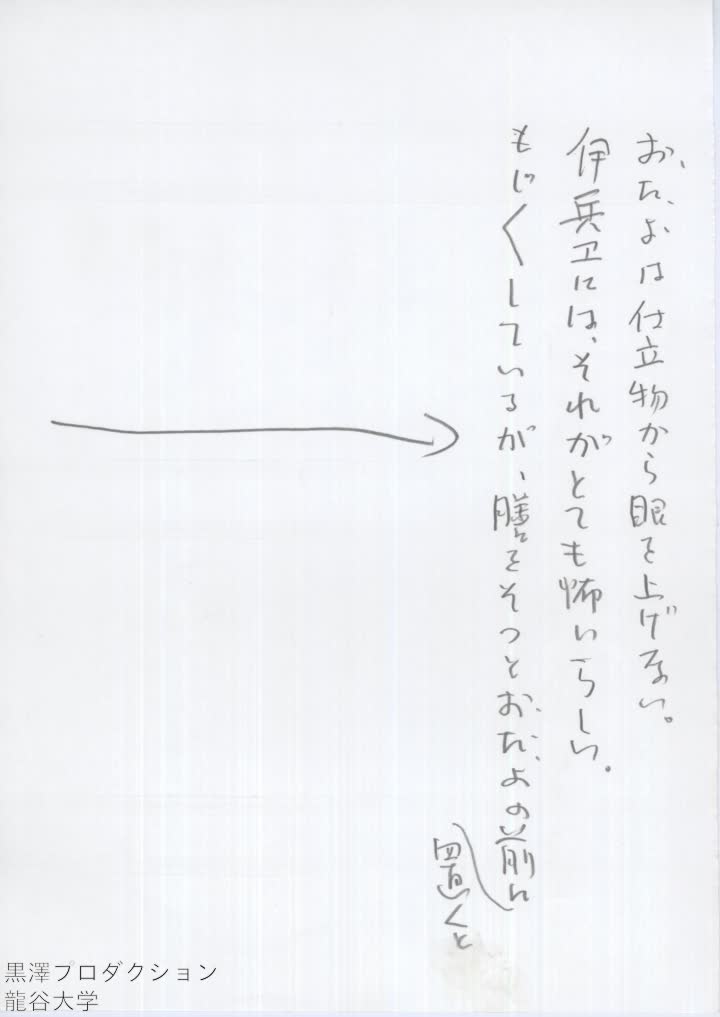 おたよは仕立物から眼を上げない。
伊兵卫には、それがとても怖いらしい。
もじ〱しているが、膳をそっとおたよの前に
置くと
黒澤プロダクション
龍谷大学